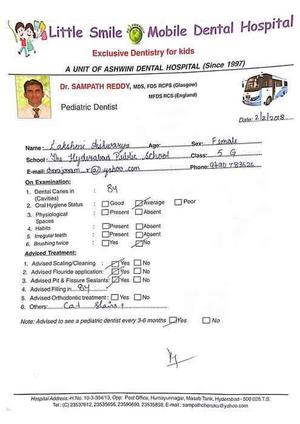 Little Smile Mobile Dental Hospital
Exclusive Dentistry for kids
A UNIT OF ASHWINI DENTAL HOSPITAL (Since 1997)
Dr. SAMPATH REDDY, MDS, FDS RCPS (Glasgow)
MFDS RCS (England)
Pediatric Dentist
Date: 2/2/2018
Name: Lakshmi Aishwarya Age: Sex: Female
School: The Hyderabad Public School Class: 5 G
E-mail: @yahoo.com Phone:
On Examination:
1. Dental Caries in (Cavities) 84
2. Oral Hygiene Status Good Average Poor
3. Physiological Spaces Present Absent
4. Habits Present Absent
5. Irregular teeth Present Absent
6. Brushing twice Yes No
Adviced Treatment:
1. Advised Scaling/Cleaning : Yes No
2. Advised Flouride application: Yes No
3. Advised Pit & Fissure Sealants: Yes No
4. Advised Filling in 84
5. Advised Orthodontic treatment : Yes No
6. Others:
Note: Advised to see a pediatric dentist every 3-6 months Yes No
Hospital Address:-H.No. 10-3-304/13, Opp: Post Office, Humayunnagar, Masab Tank, Hyderabad - 500 028.T.S.
Tel: (C) 23537612, 23535656, 23590690, 23535858, E-mail : sampathcheruku@yahoo.com